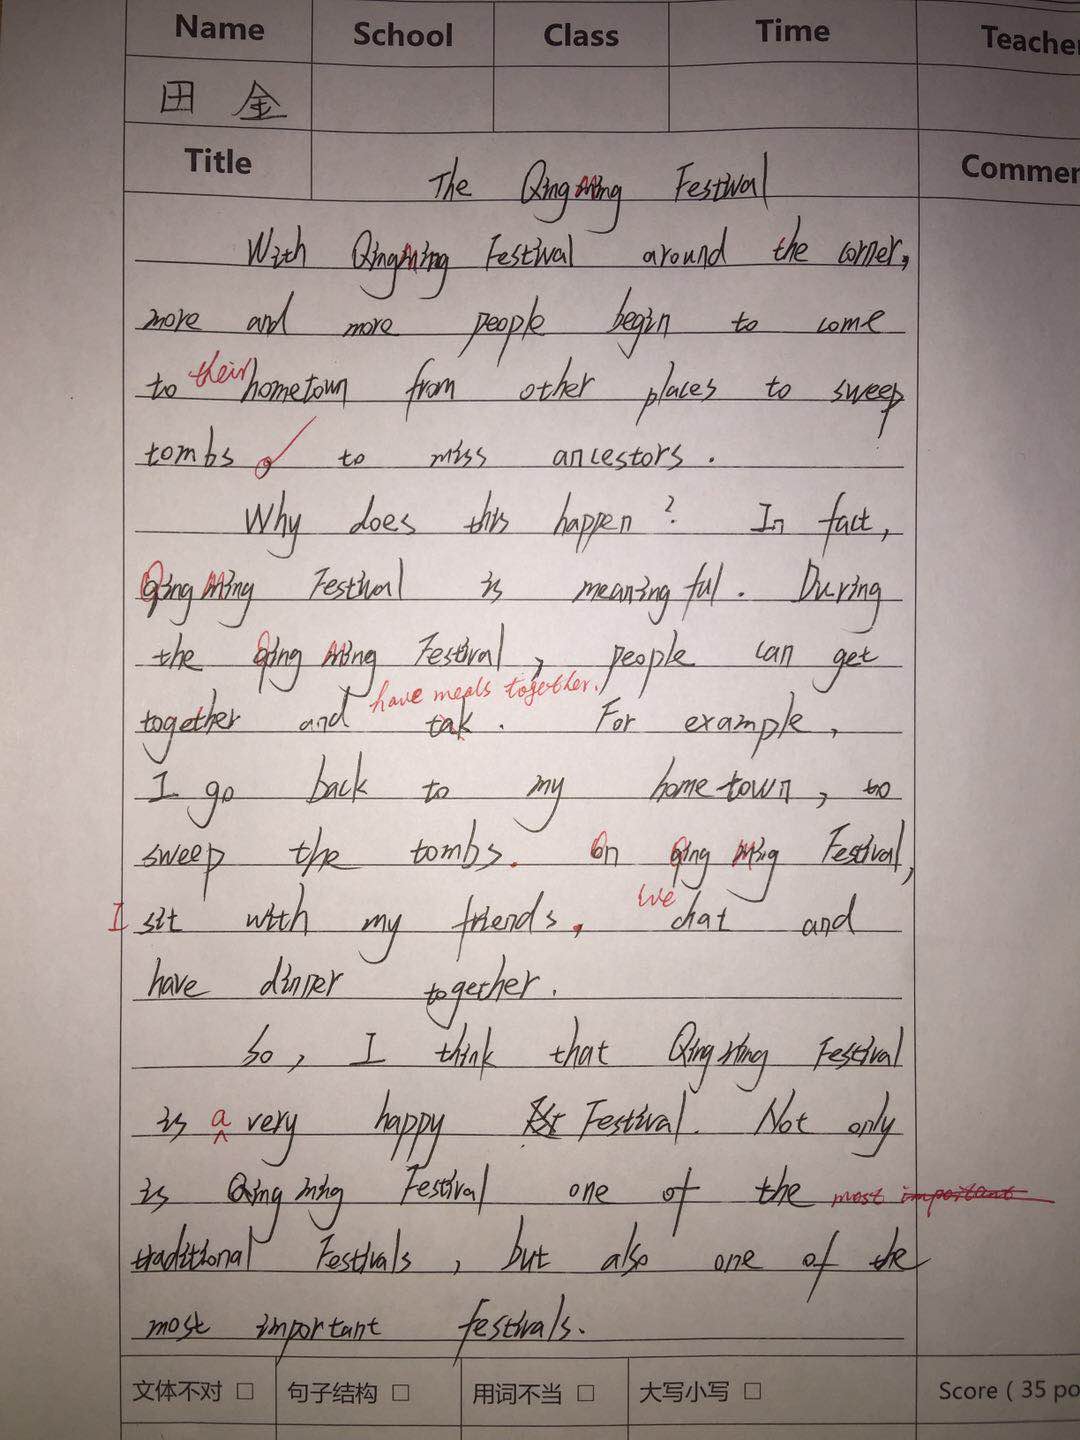 Name School Class Time Teache
田 金
Title The Qing Ming Festival Commen
With QingMing Festival around the corner,
more and more people begin to come
to their hometown from other places to sweep
tombs to miss ancestors.
Why does this happen? In fact,
Qing Ming Festival is meaningful. During
the Qing Ming Festival, people can get
have meals together.
together and tak. For example,
I go back to my hometown, to
sweep the tombs. On Qing Ming Festival,
I sit with my friends. We chat and
have dinner together.
So, I think that Qing Ming Festival
is a very happy Festival. Not only
is Qing Ming Festival one of the most important
traditional Festivals, but also one of the
most important festivals.
文体不对 □ 句子结构 □ 用词不当 □ 大写小写 □ Score ( 35 po